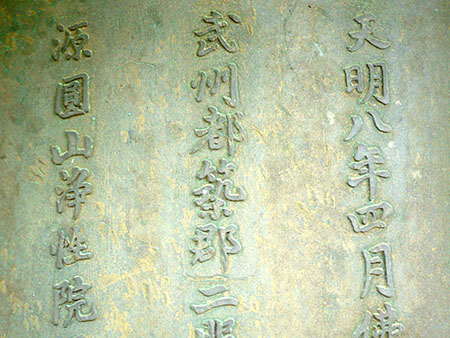 天明八年四月佛
武州都筑郡二
源圓山淨性院